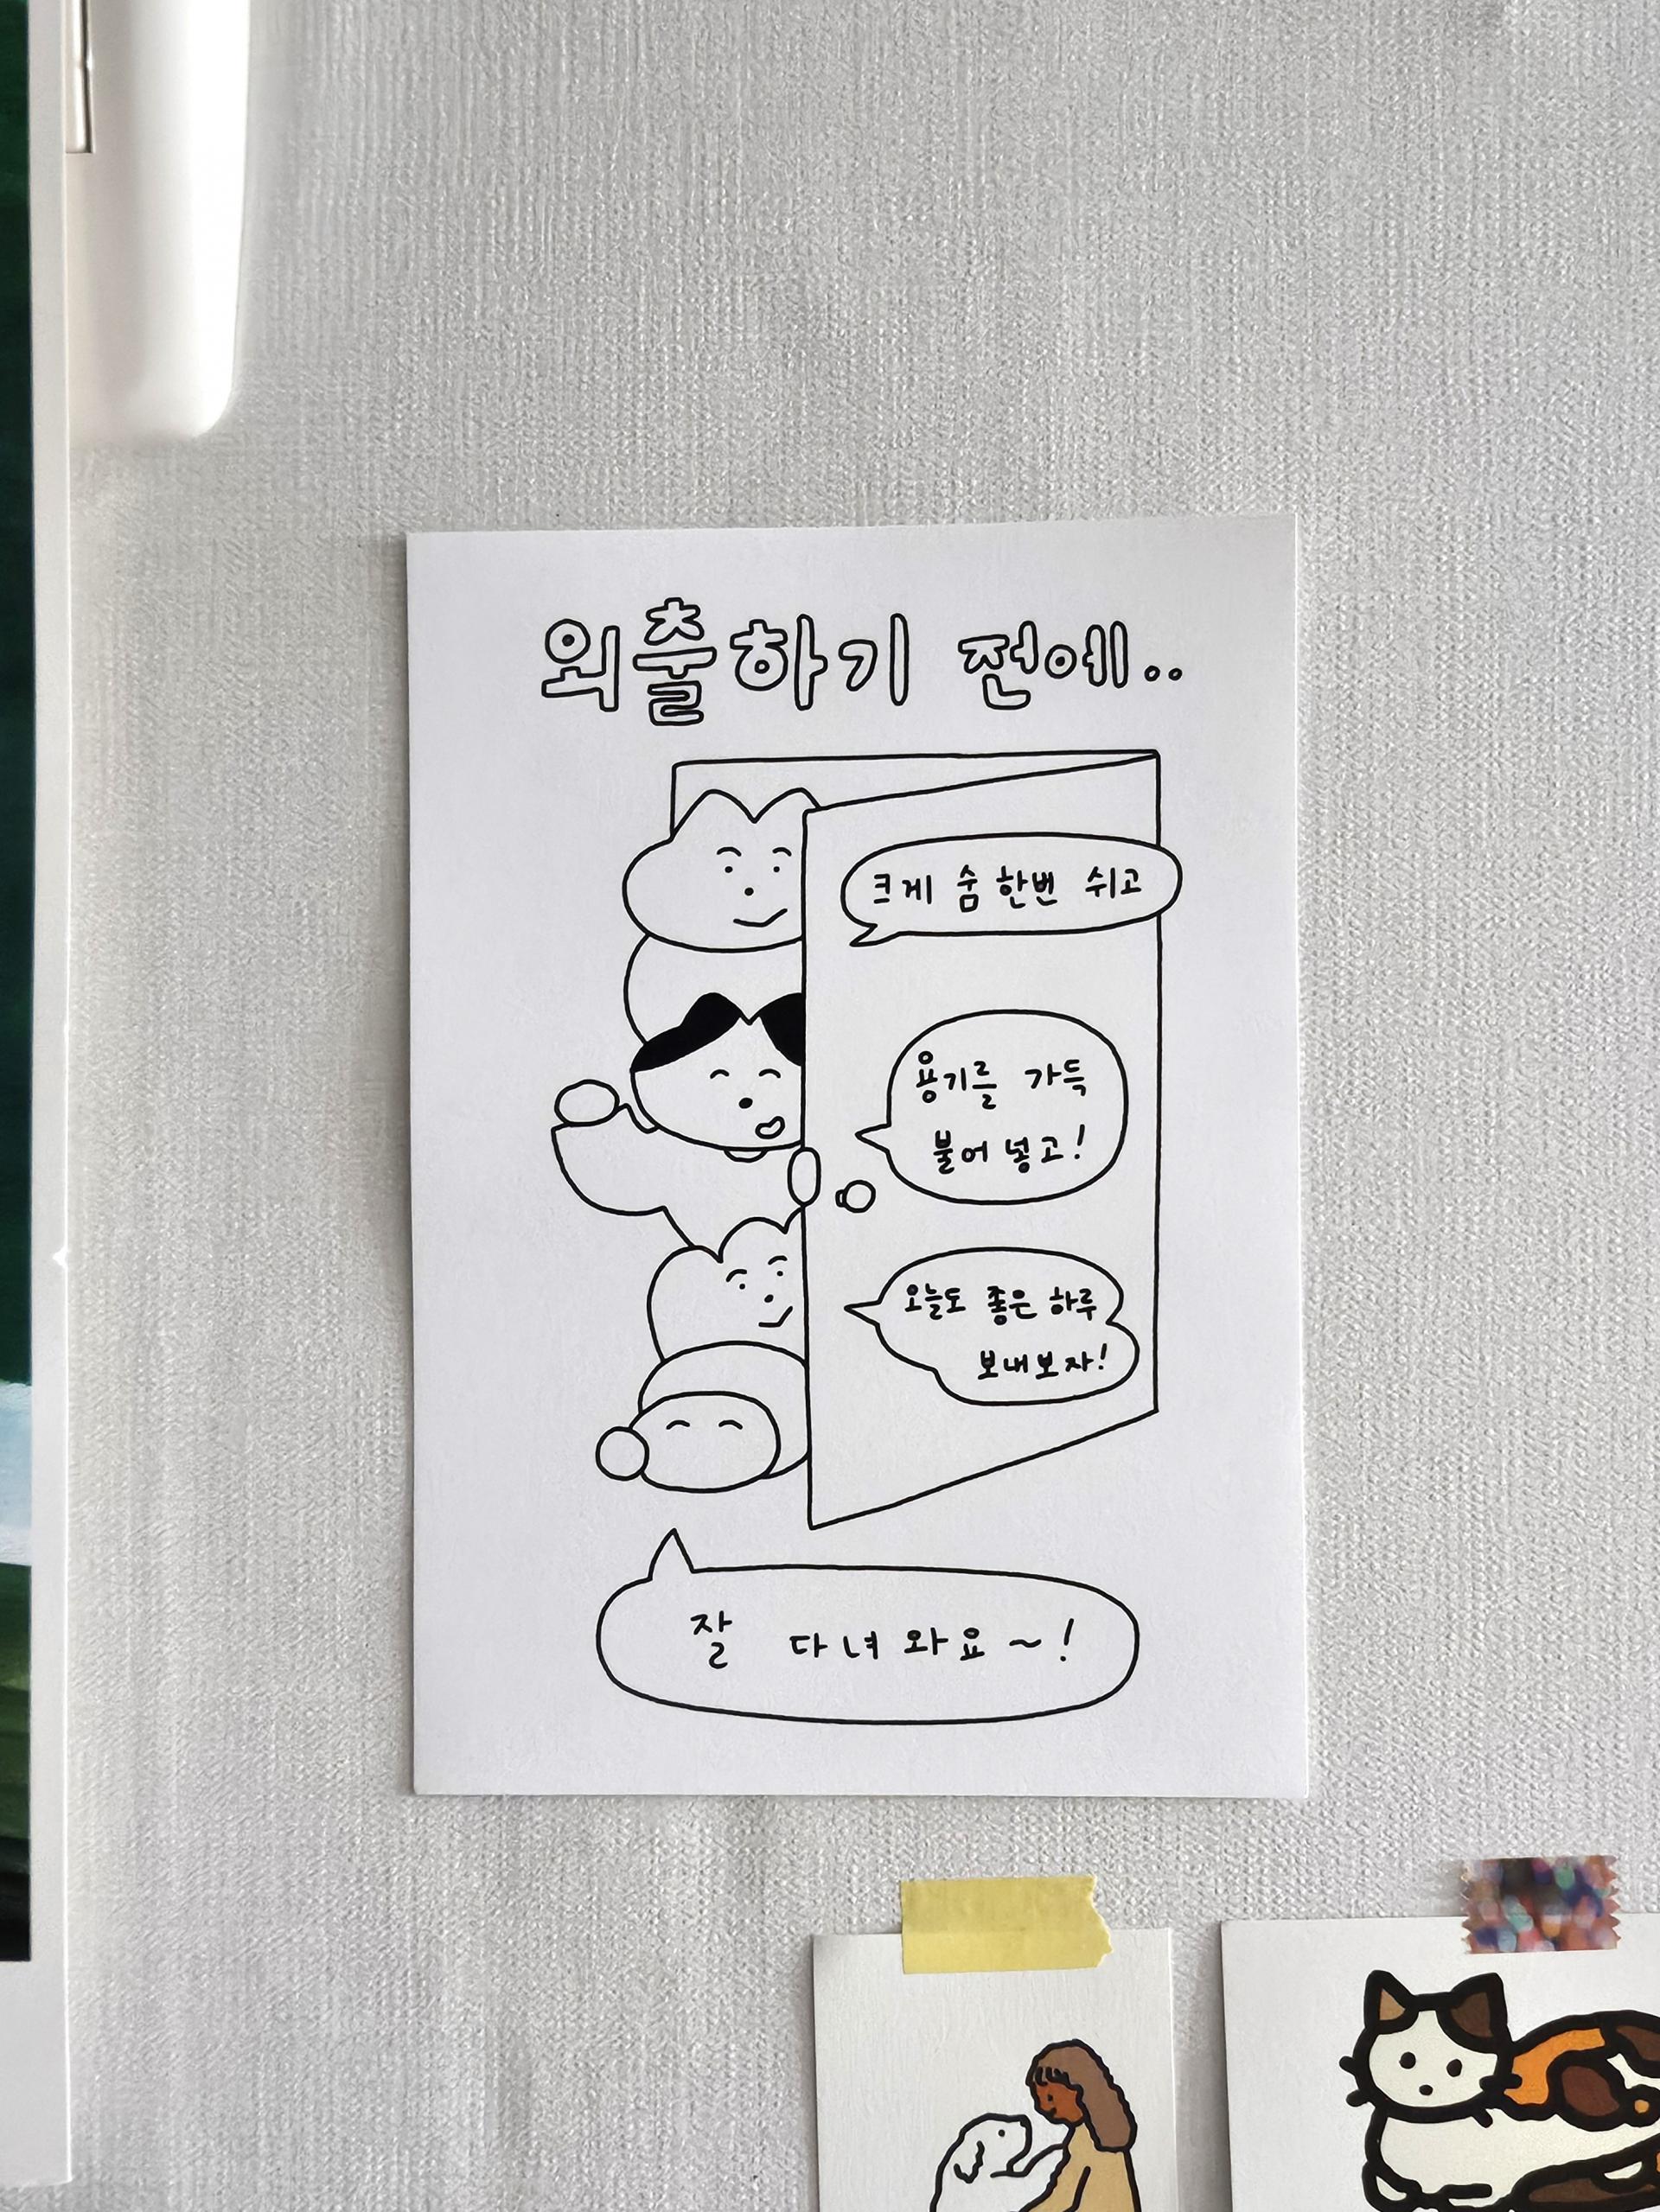 외출하기 전에..
크게 숨 한번 쉬고
용기를 가득
불어 넣고!
오늘도 좋은 하루
보내보자!
잘 다녀와요~!